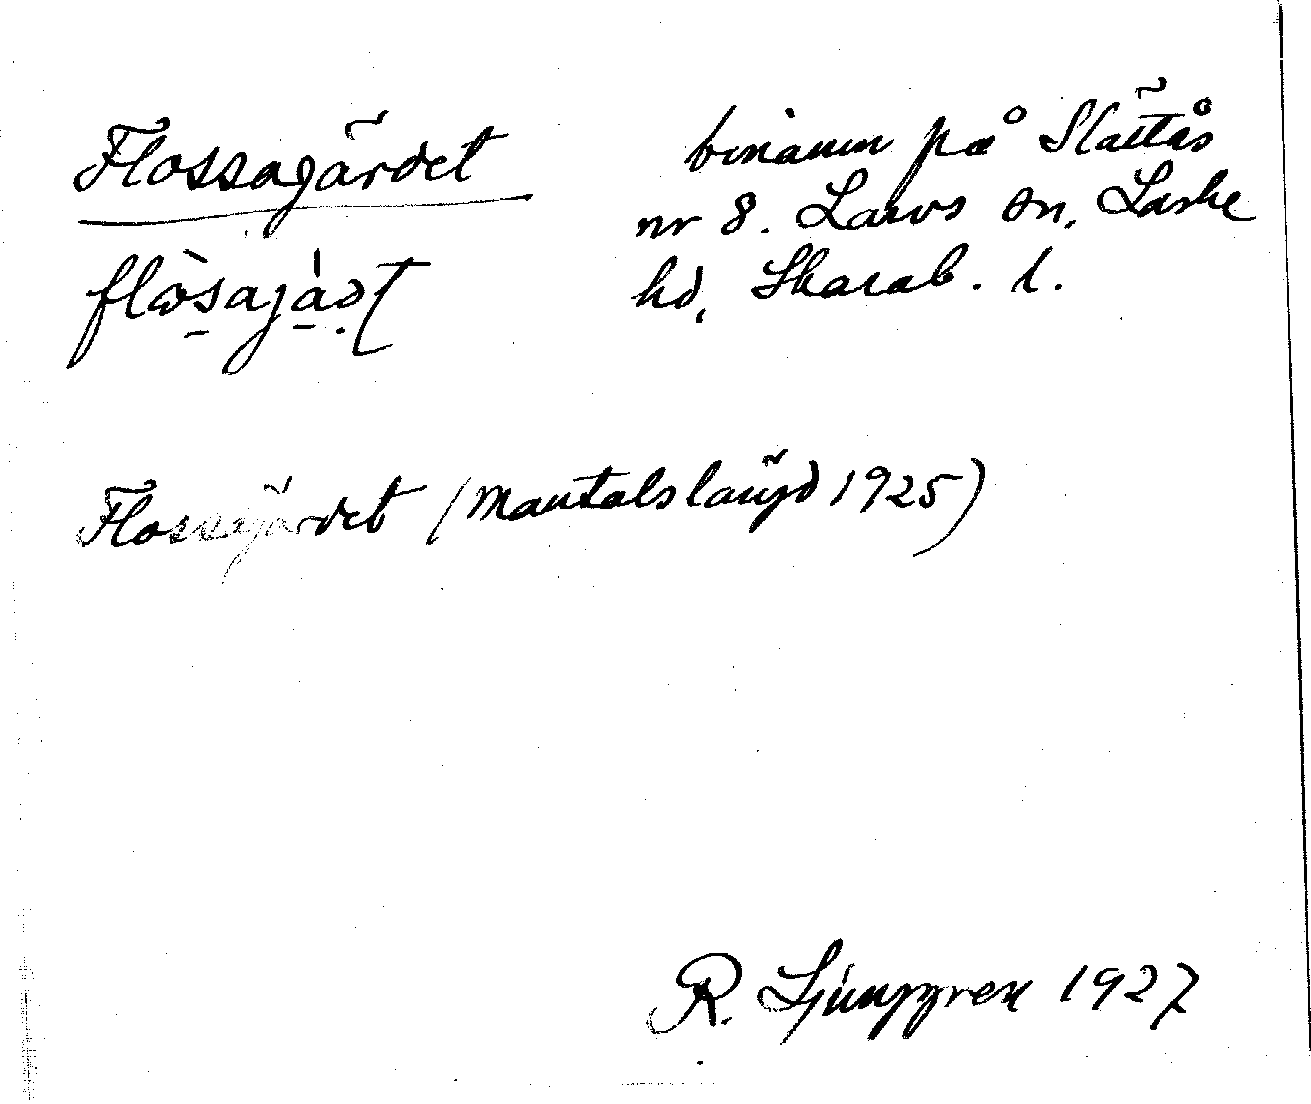 Flossagärdet
binamn på Slättås
nr 8. Larvs sn, Laske
hd, Skarab. l.
Flossagärdet (Mantalslängd 1925)
R. Ljunggren 1927